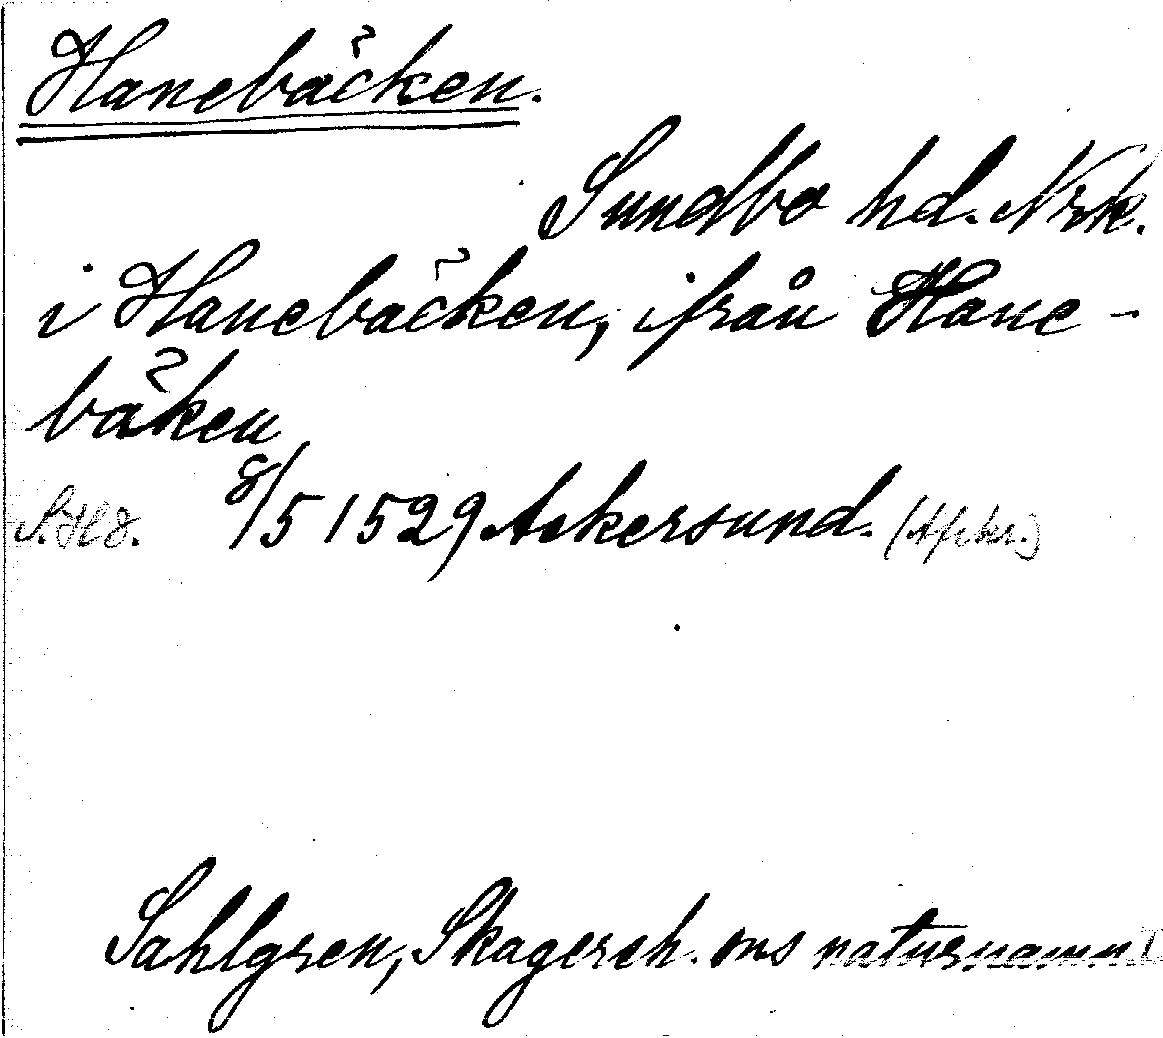 Hanebäcken.
Sundbo hd. Nrk.
i Hanebäcken, ifrån Hane-
bäken
S. H8. 8/5 1529 Askersund. (Afskr.)
Sahlgren, Skagersh. ons naturnamn I